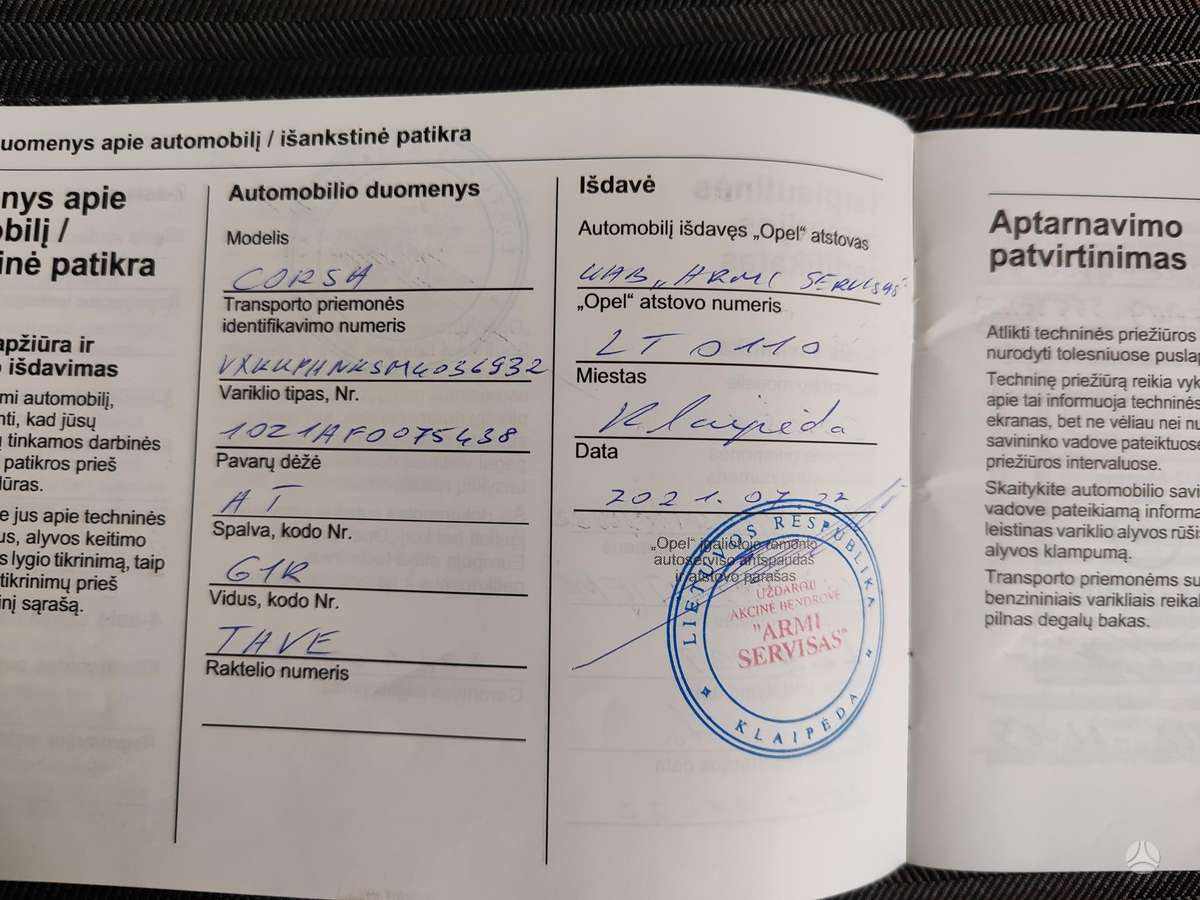 uomenys apie automobilį / išankstinė patikra
nys apie
obilį /
inė patikra
apžiūra ir
o išdavimas
mi automobilį,
nti, kad jūsų
ų tinkamos darbinės
patikros prieš
dūras.
e jus apie techninės
us, alyvos keitimo
s lygio tikrinimą, taip
tikrinimų prieš
inį sąrašą.
Automobilio duomenys
Modelis
CORSA
Transporto priemonės
identifikavimo numeris
VXKUPHNKSM4036932
Variklio tipas, Nr.
1021AF0075438
Pavarų dėžė
AT
Spalva, kodo Nr.
G1R
Vidus, kodo Nr.
TAVE
Raktelio numeris
Išdavė
Automobilį išdavęs „Opel“ atstovas
UAB „ARMI SERVISAS“
„Opel“ atstovo numeris
LT 0110
Miestas
Klaipėda
Data
2021. 07. 22
„Opel“ įgaliotojo remonto
autoserviso antspaudas
ir atstovo parašas
LIETUVOS RESPUBLIKA
UŽDAROJI
AKCINĖ BENDROVĖ
"ARMI
SERVISAS"
KLAIPĖDA
Aptarnavimo
patvirtinimas
Atlikti techninės priežiūros
nurodyti tolesniuose puslap
Techninę priežiūrą reikia vyk
apie tai informuoja techninės
ekranas, bet ne vėliau nei nu
savininko vadove pateiktuose
priežiūros intervaluose.
Skaitykite automobilio savi
vadove pateikiamą informa
leistinas variklio alyvos rūšis
alyvos klampumą.
Transporto priemonėms su
benzininiais varikliais reikal
pilnas degalų bakas.